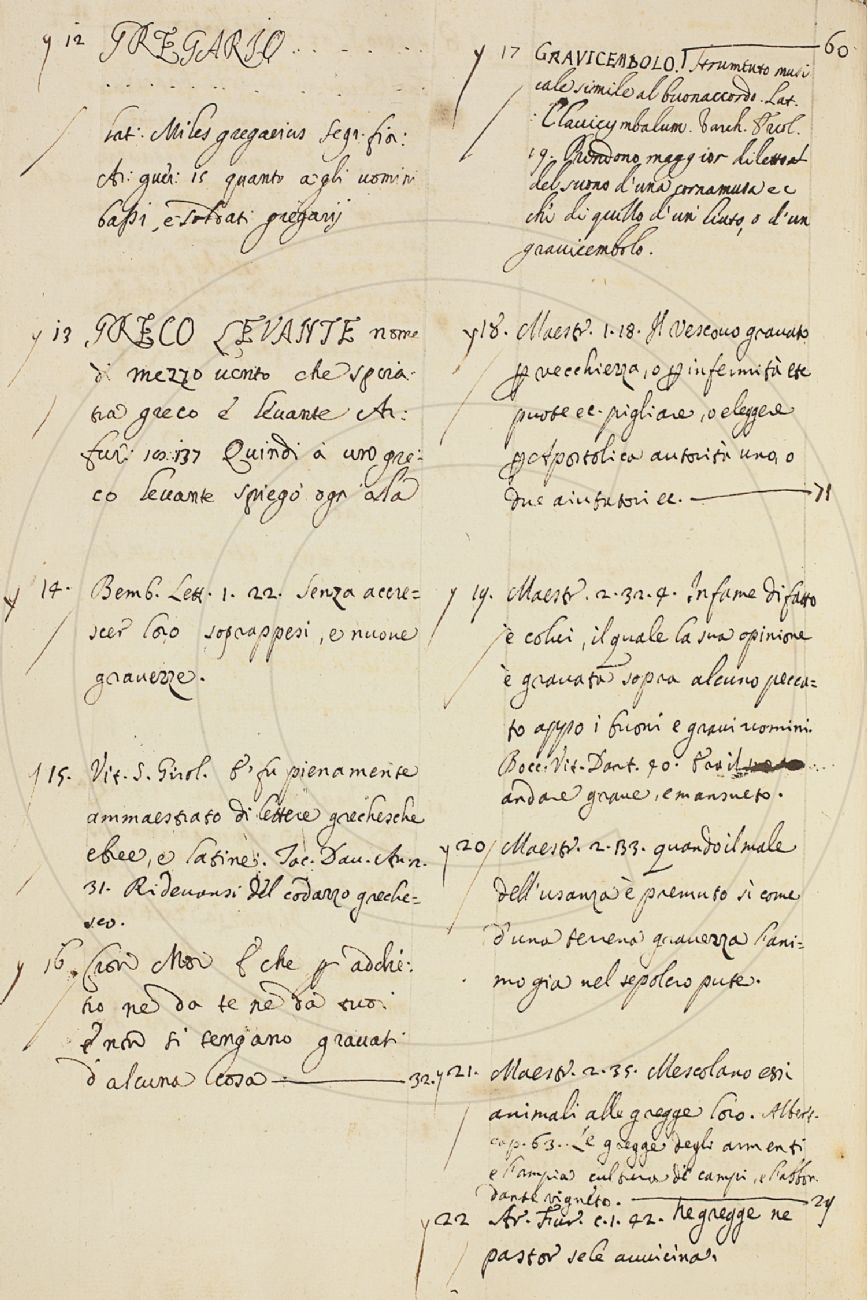 y 12 GREGARIO . . . . . .
. . . . . . . . . . . .
Lat: Miles gregarius Segr: fior:
Ar: guer: 15 quanto agli uomini
bassi, e soldati gregarij
y 13 GRECO LEVANTE nome
di mezzo vento che spira
tra greco e levante Ar:
fur: 19: 137 Quindi a uno gre=
co levante spiegò ogni ala
y 14. Bemb. Lett. 1. 22. senza accre=
scer loro soprappesi, e nuove
gravezze.
y 15. Vit. S. Girol. E fu pienamente
ammaestrato di lettere grechesche
ebree, e latine. Tac. Dav. Ann.
31. Ridevansi del codazzo greche=
sco.
y 16. Cron Mor E che per addie=
tro ne da te ne da tuoi
e non si tengano gravati
d'alcuna cosa 32.
60
y 17 GRAVICEMBOLO. Strumento musi
cale simile al buonaccordo. Lat.
Clavicymbalum. Varch. Ercol.
19. Prendono maggior diletto
del suono d'una cornamusa ec
che di quello d'un liuto, o d'un
gravicembolo.
y 18. Maestr. 1. 18. Il Vescovo gravato
per vecchiezza, o per infermità etc
puote ec. pigliare, o eleggere
per Apostolica autorità uno, o
due aiutatori ec. 71
y 19. Maestr. 2. 32. 4. Infame di fatto
è colui, il quale la sua opinione
è gravata sopra alcuno pecca=
to appo i buoni e gravi uomini.
Bocc. Vit. Dant. 40.
andare grave, e mansueto.
y 20 Maestr. 2. 133. quando il male
dell'usanza è premuto sì come
d'una terrena gravezza l'ani=
mo già nel sepolcro pute.
y 21. Maestr. 2. 35. Mescolano essi
animali alle gregge loro. Albert.
cap. 63. Le gregge degli armenti
e l'ampia cultura de campi, e l'abbon
dante vigneto. 24
y 22 Ar. Fur. c. 1. 42. Ne gregge ne
pastor se le avvicina.